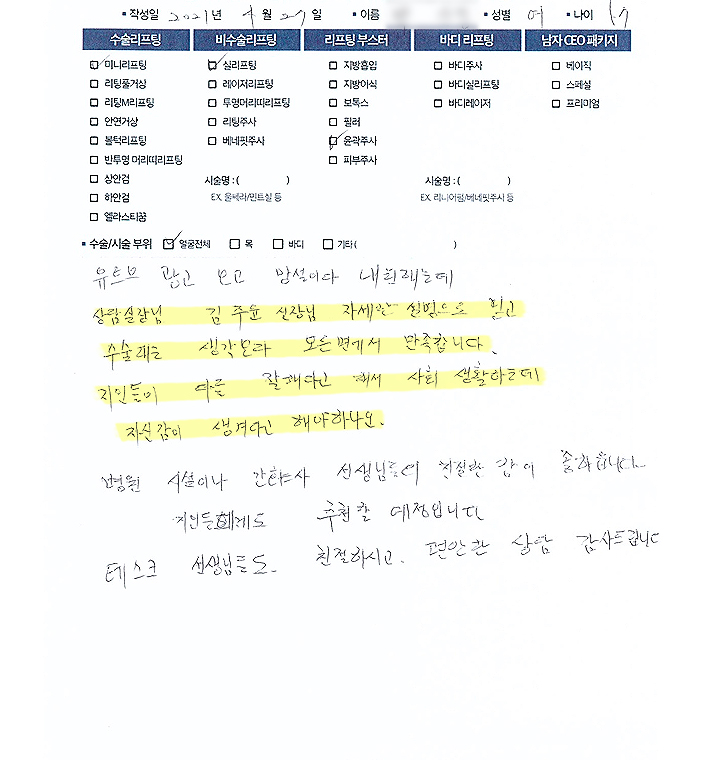 ▪ 작성일 2021년 4월 27일 ▪ 이름 ▪ 성별 여 ▪ 나이
수술리프팅 비수술리프팅 리프팅 부스터 바디 리프팅 남자 CEO 패키지
미니리프팅 실리프팅 지방흡입 바디주사 베이직
리팅풀거상 레이저리프팅 지방이식 바디실리프팅 스페셜
리팅M리프팅 투명머리띠리프팅 보톡스 바디레이저 프리미엄
안면거상 리팅주사 필러
볼턱리프팅 베네핏주사 윤곽주사
반투명 머리띠리프팅 피부주사
상안검 시술명 : ( ) 시술명 : ( )
하안검 EX. 울쎄라/민트실 등 EX. 리니어펌/베네핏주시 등
엘라스티꿈
▪ 수술/시술 부위 얼굴전체 목 바디 기타 ( )
유트브 광고 보고 망설이다 내원했는데
상담실장님 김주윤 실장님 자세한 설명으로 믿고
수술했는 생각보라 모든면에서 만족합니다.
지인들이 다들 잘했다고 해서 사회 생활하는데
자신감이 생겨다고 해야하나요.
병원 시설이나 간호사 선생님들이 친절한 감이 좋아읍니다
지인들한테도 추천할 예정입니다
테스크 선생님들도. 친절하시고. 편안한 상담 감사드립니다